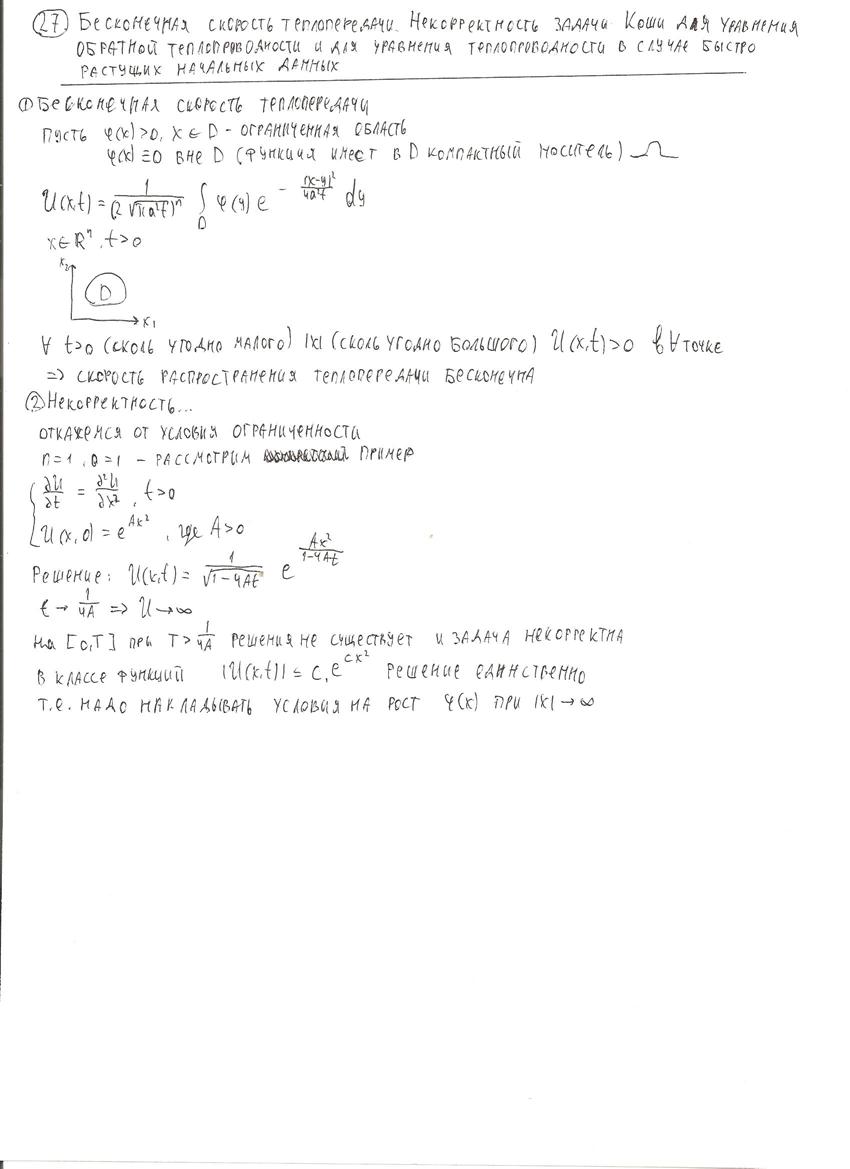 27) Бесконечная скорость теплопередачи. Некорректность задачи Коши для уравнения
обратной теплопроводности и для уравнения теплопроводности в случае быстро
растущих начальных данных
① Бесконечная скорость теплопередачи
Пусть φ(x)>0, x∈D - ограниченная область
φ(x)≡0 вне D (функция имеет в D компактный носитель)
U(x,t) = 1/(2√(πa²t))ⁿ ∫_D φ(y) e^(-(x-y)²/(4a²t)) dy
x∈Rⁿ, t>0
x₂
D
x₁
∀ t>0 (сколь угодно малого) |x| (сколь угодно большого) U(x,t)>0 в ∀ точке
=> скорость распространения теплопередачи бесконечна
② Некорректность...
откажемся от условия ограниченности
n=1, a=1 – рассмотрим пример
{ ∂U/∂t = ∂²U/∂x², t>0
U(x,0) = e^(Ax²), где A>0
Решение: U(x,t) = 1/√(1-4At) e^(Ax²/(1-4At))
t → 1/4A => U→∞
на [0,T] при T> 1/4A решения не существует и задача некорректна
В классе функций |U(x,t)| ≤ C₁e^(Cx²) решение единственно
т.е. надо накладывать условия на рост φ(x) при |x|→∞